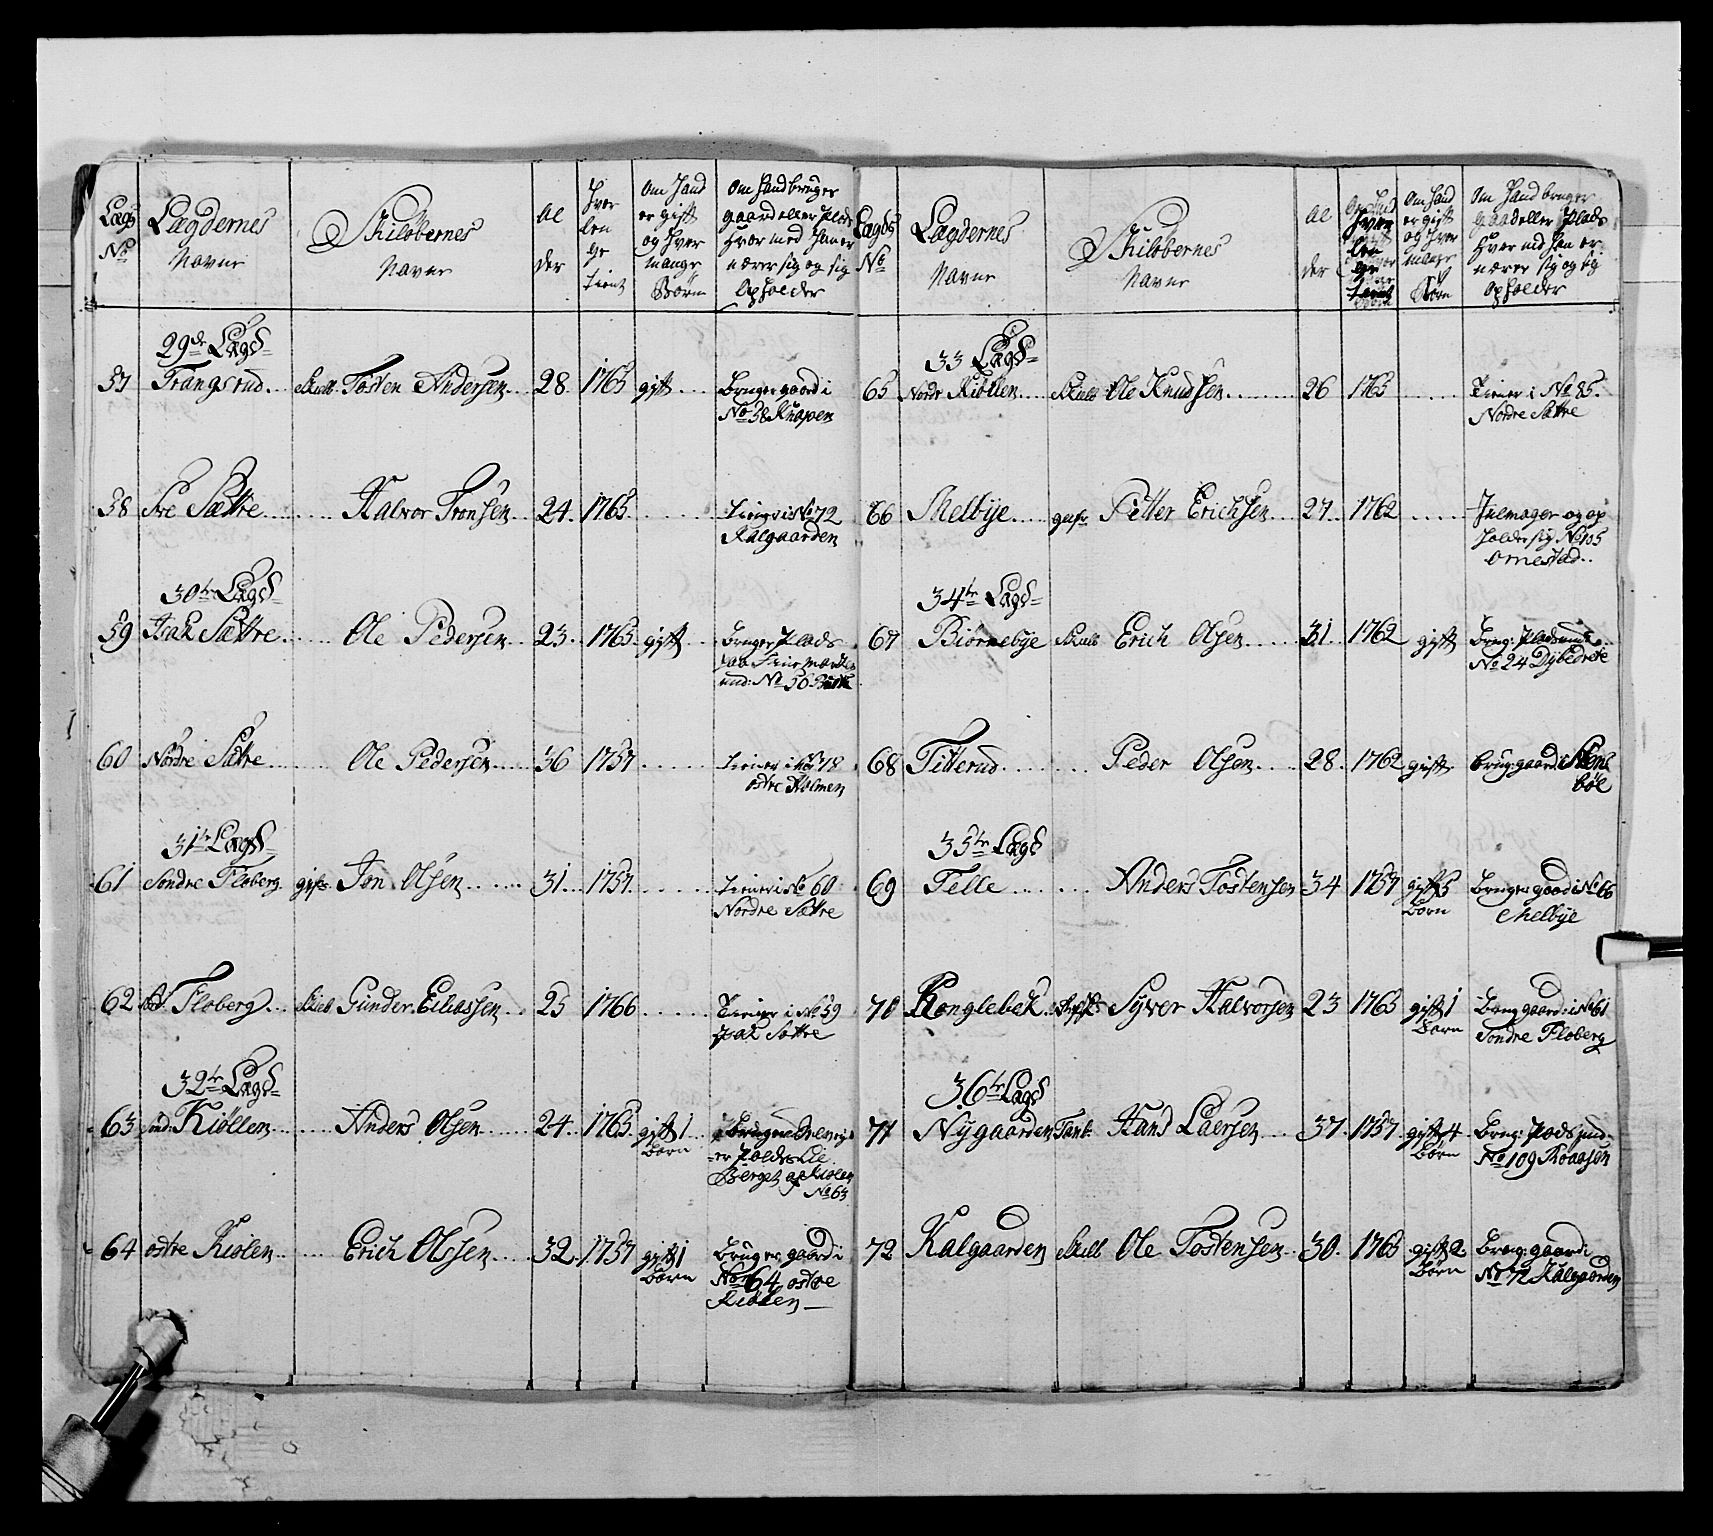 Lægds No | Lægdernes Navne | Skiløbernes Navne | Al der | Hvor len ge tient | Om Hand er gift og Hvor mange Børn | Om Hand bruger gaard eller Plads Hvor med Han er nærer sig og sig Opholder
29de Lægd
57 Trangsrud Skalk Tosten Andersen 28 1765 gift Bruger gaard i
No 58 Knapen
58 Sættre Halvor Tronsen 24 1765 Tiener i No 72
Kalgaarden
30te Lægd
59 Isak Sættre Ole Pedersen 23 1765 gift Bruger Plads
und: No 50
60 Nordre Sætre Ole Pedersen 36 1757 Tiener i No 78
østre Holmen
31te Lægd
61 Søndre Floberg gefr Jon Olsen 31 1757 Tiener i No 60
Nordre Sættre
62 Nord Floberg Skalk Gunder Eiliassen 25 1766 Tiener i No 59
Isak Sættre
32te Lægd
63 Kiøllen Anders Olsen 24 1765 gift 1
Børn
Berget af Kiølen
No 63
64 østre Kiølen Erich Olssen 32 1757 gift 1 Bruger gaard i
Børn No 64 østre
Kiølen
Lægds No | Lægdernes Navne | Skiløbernes Navne | Al der | Hvor len ge tient | Om Hand er gift og Hvor mange Børn | Om Hand bruger gaard eller Plads Hver med Han er nærer sig og sig Opholder
33 Lægd
65 Nordr Kiøllen Skalk Ole Knudsen 26 1765 Tiener i No 85.
Nordre Sættre
66 Melbye gefr Petter Erichsen 27 1762 Hiulmager og op
holder sig No 105
Ornestad
34te Lægd
67 Biørnebye Skalk Erich Olsen 31 1762 gift Brug: Plads und
No 24 Dybedrete
68 Titterud Peder Olsen 28 1762 gift Brug: gaard i Stens
bøl
35te Lægd
69 Telle Anders Tostensen 34 1757 gift 5 Bruger gaard i No 66
Børn Melbye
70 Konglebek Syver Halvorsen 23 1765 gift 1 Brug gaard i No 61
Barn Søndre Floberg
36te Lægd
71 Nygaarden Tamb Hans Laersen 37 1757 gift 4 Brug: Plads und
Børn No 109 Kroaasen
72 Kalgaarden Skalk Ole Tostensen 30 1765 gift 2 Brug: gaard i
Børn No 72 Kalgaarden